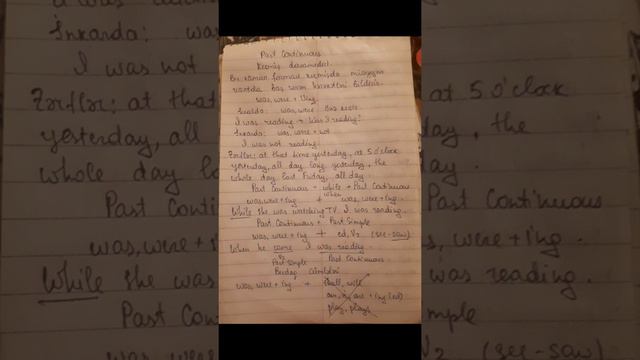 Past Continuous
Keçmiş davamedici.
Bu zaman forması keçmişdə müəyyən
vaxtda baş verən hərəkətləri bildirir.
was, were + Ving
Sualda: was, were
I was reading → Was I reading?
İnkarda: was, were + not
I was not reading.
Zərflər: at that time yesterday, at 5 o'clock
yesterday, all day long yesterday, the
whole day last Friday, all day.
Past Continuous - while + Past Continuous
when
was, were + ing + was, were + ing.
While she was watching TV, I was reading.
Past Continuous + Past Simple
was, were + ing + ed, V2 (see-saw)
When he came I was reading.
Past Simple Past Continuous
was, were + ing + shall, will
am, is, are + ing (ed)
play, plays